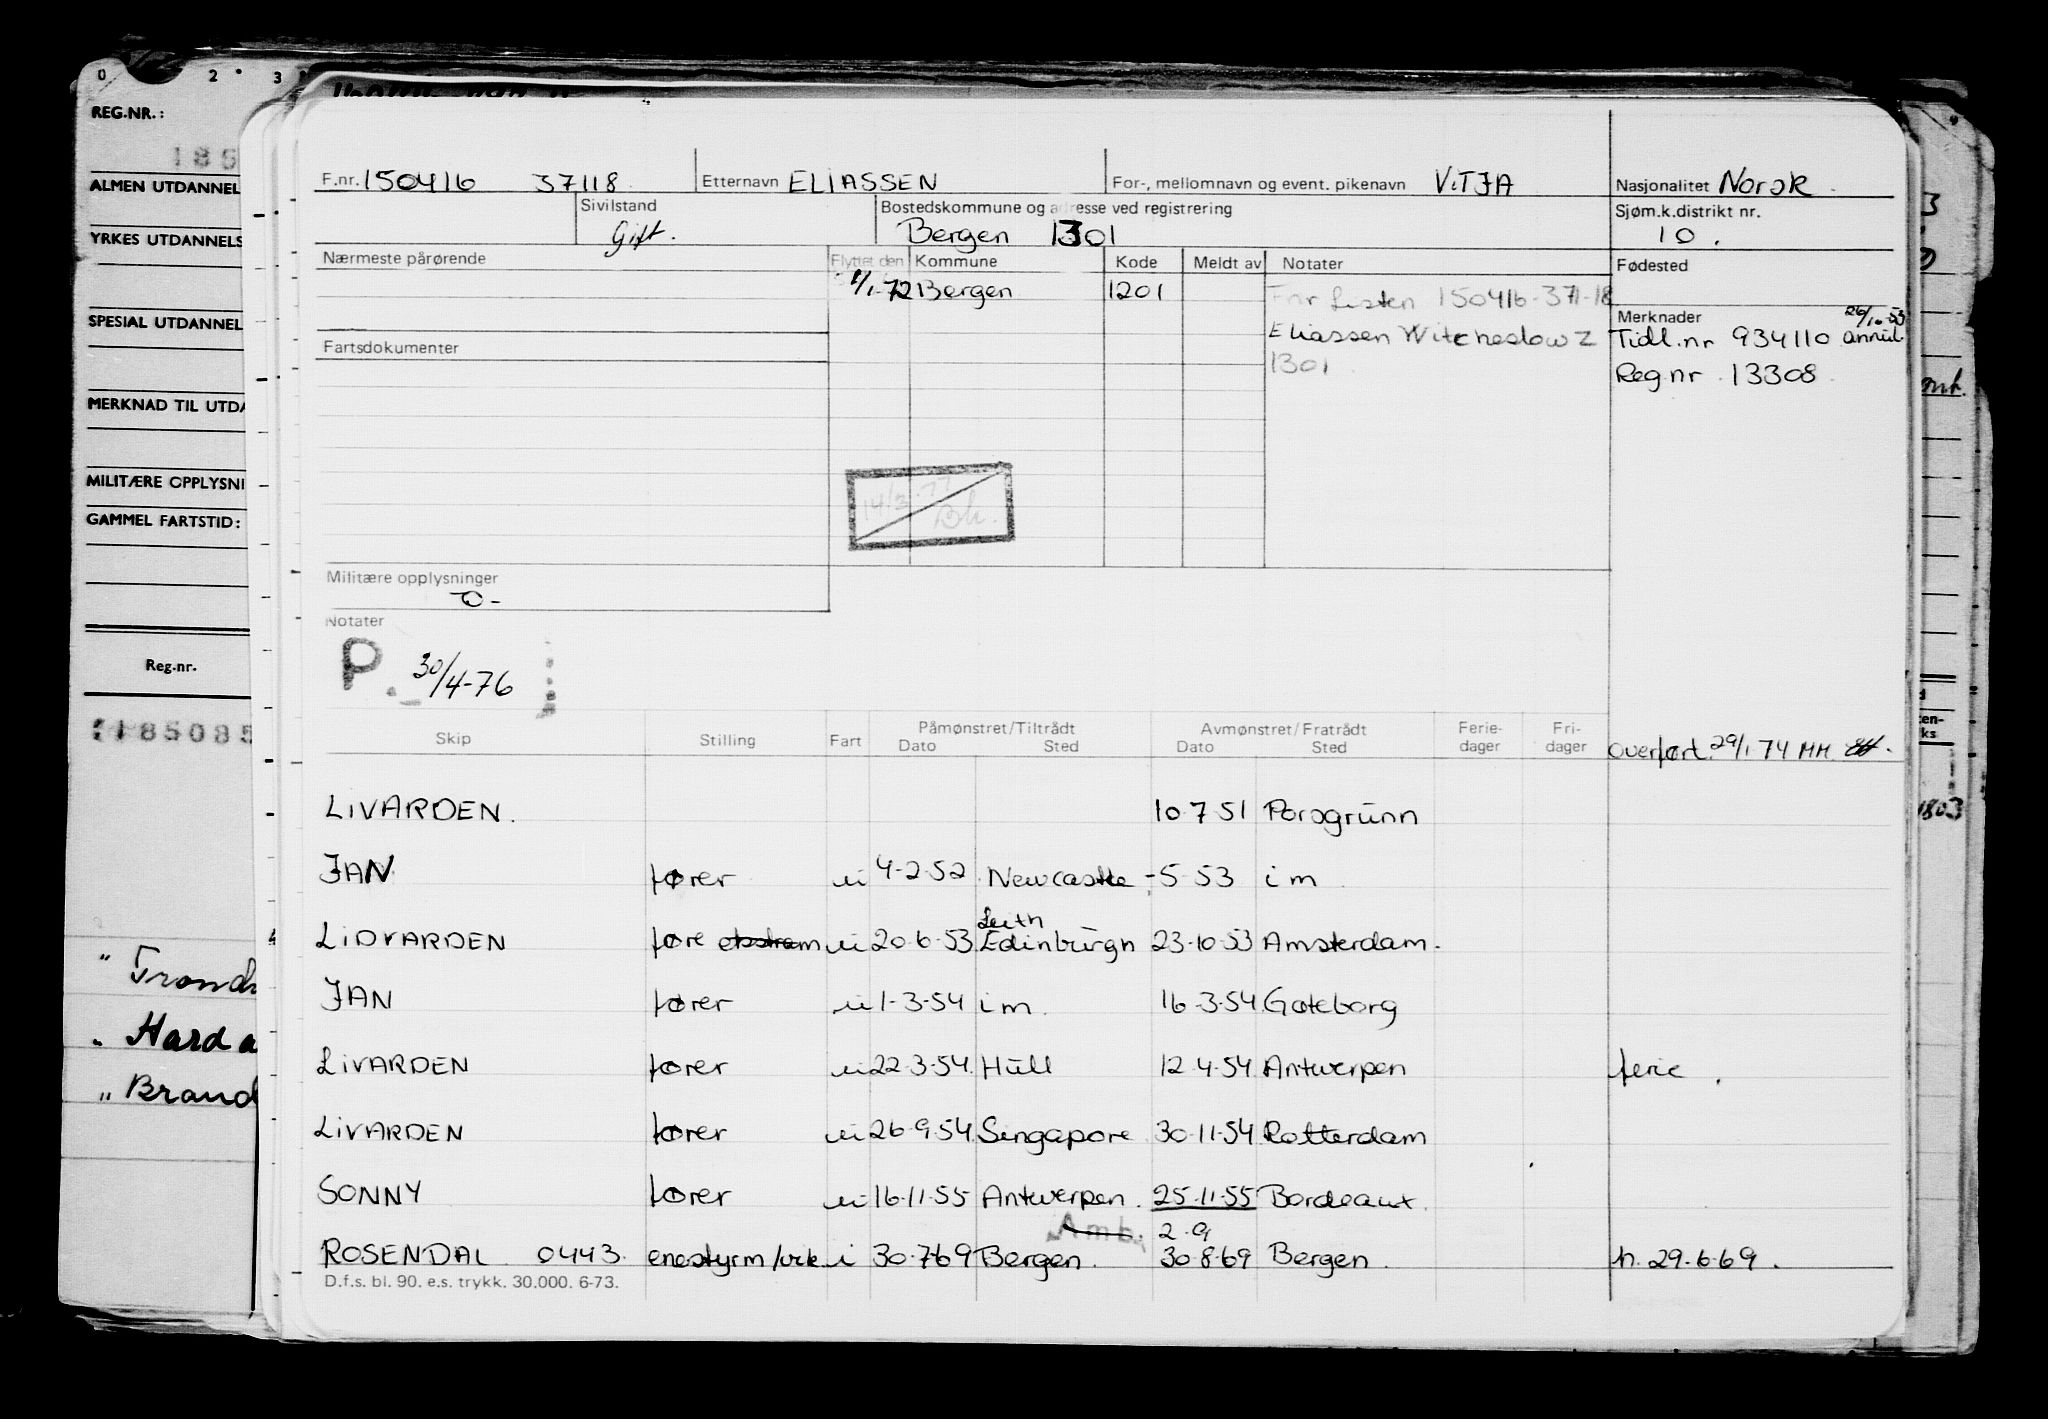 0 2 3
REG.NR.:
185
ALMEN UTDANNEL
YRKES UTDANNELS
SPESIAL UTDANNEL
MERKNAD TIL UTDA
MILITÆRE OPPLYSNI
GAMMEL FARTSTID:
Reg.nr.
185085
" Trondh
" Harda
" Brand
F.nr. 150416 37118 Etternavn ELIASSEN For-, mellomnavn og event. pikenavn VITJA Nasjonalitet Norsk
Sivilstand Bostedskommune og adresse ved registrering Sjøm.k.distrikt nr.
Gift. Bergen 1301 10.
Nærmeste pårørende Flyttet den Kommune Kode Meldt av Notater Fødested
1/1-72 Bergen 1201 Fnr Listen 150416-371-18
Merknader 26/10-53
Eliassen Witcheslow Z Tidl.nr 934110 annul.
Fartsdokumenter 1301 Reg nr 13308
14/3-77
Bh.
Militære opplysninger
-0-
Notater
P. 30/4-76
Påmønstret/Tiltrådt Avmønstret/Fratrådt Ferie- Fri-
Skip Stilling Fart Dato Sted Dato Sted dager dager Overført 29/1 74 MM
LIVARDEN. 10.7.51 Porsgrunn
JAN fører ui 4-2-52 Newcastle -5-53 im
Leith
LIDVARDEN føre ekstram ui 20-6-53 Edinburgh 23-10-53 Amsterdam.
JAN fører ui 1-3-54 im. 16-3-54 Gøteborg
LIVARDEN fører ui 22-3-54 Hull 12-4-54 Antwerpen ferie.
LIVARDEN fører ui 26-9-54 Singapore 30-11-54 Rotterdam
SONNY fører ui 16-11-55 Antwerpen. 25-11-55 Bordeaux.
Amb. 2.9
ROSENDAL 0443 enestyrm/vik i 30-7-69 Bergen. 30-8-69 Bergen. h. 29-6-69.
D.f.s. bl. 90. e.s. trykk. 30.000. 6-73.
1803